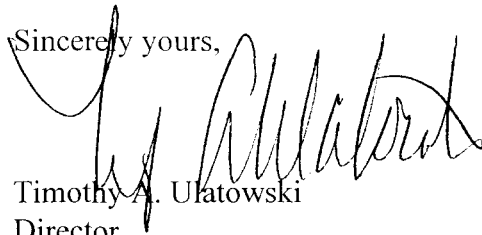 Sincerely yours,
Timothy A. Ulatowski
Director